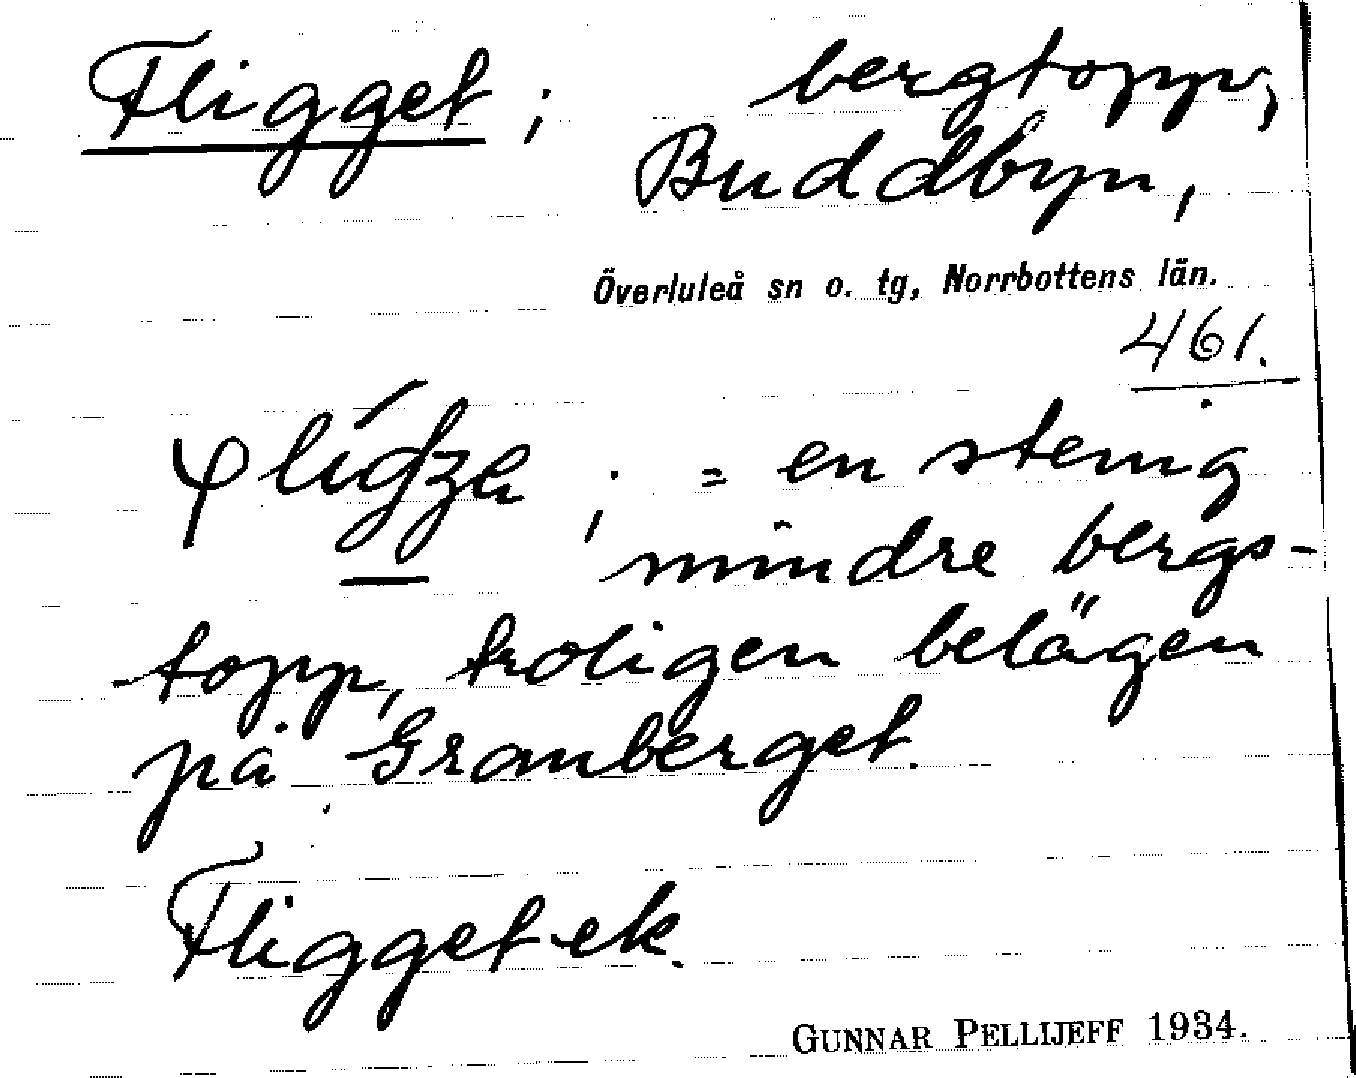 Fligget; bergtopp,
Buddbyn,
Överluleå sn o. tg, Norrbottens län.
461.
; = en stenig
mindre bergs-
topp, troligen belägen
på Granberget.
Fligget ek.
GUNNAR PELLIJEFF 1934.